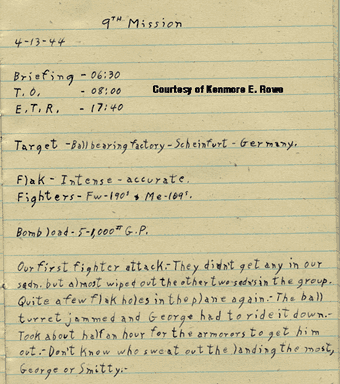 9TH Mission
4-13-44
Briefing - 06:30
T.O. - 08:00
Courtesy of Kenmore E. Rowe
E.T.R. - 17:40
Target - Ball bearing factory - Scheinfurt - Germany.
Flak - Intense - accurate.
Fighters - Fw-190s & Me-109s.
Bomb load - 5-1,000# G.P.
Our first fighter attack - They didn't get any in our
sqdn. but almost wiped out the other two sqdns in the group.
Quite a few flak holes in the plane again - The ball
turret jammed and George had to ride it down -
Took about half an hour for the armorers to get him
out - Don't know who sweat out the landing the most,
George or Smitty -